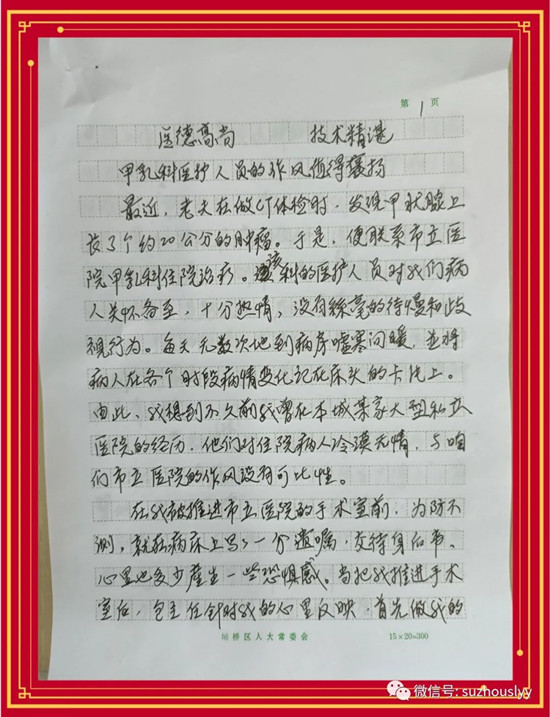 第1页
医德高尚 技术精湛
甲乳科医护人员的作风值得褒扬
最近，老夫在做CT体检时，发现甲状腺上
长了个约20公分的肿瘤。于是，便联系市立医
院甲乳科住院治疗。该科的医护人员对我们病
人关怀备至，十分热情，没有丝毫的待慢和歧
视行为。每天无数次地到病房嘘寒问暖，并将
病人在各个时段病情变化记在床头的卡片上。
由此，我想到不久前我曾在本城某家大型私立
医院的经历，他们对住院病人冷漠无情，与咱
们市立医院的作风没有可比性。
在我被推进市立医院的手术室前，为防不
测，就在病床上写了一分遗嘱，交待身后事。
心里也多少產生一些恐惧感。当把我推进手术
室后，包主任针对我的心里反映，首先做我的
埇桥区人大常委会 15×20=300
微信号: suzhouslyy